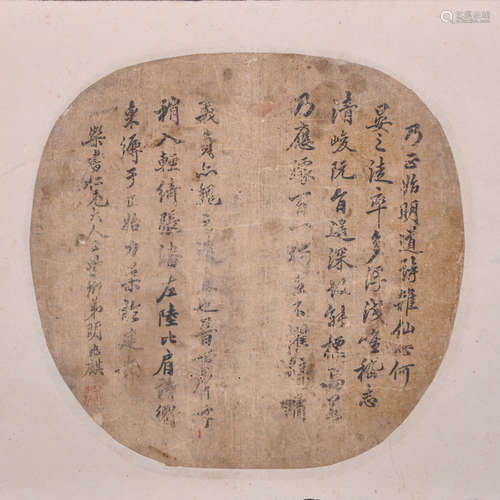 乃正始明道詩雜仙心何
晏之徒率多浮淺唯嵇志
清峻阮旨遥深故能標焉若
乃應璩百一獨立不懼辭譎
義貞亦魏之遺直也晉世群才
稍入輕綺張潘左陸比肩詩衢
采縟于正始力柔於建安
仁兄大人 弟明兆麒